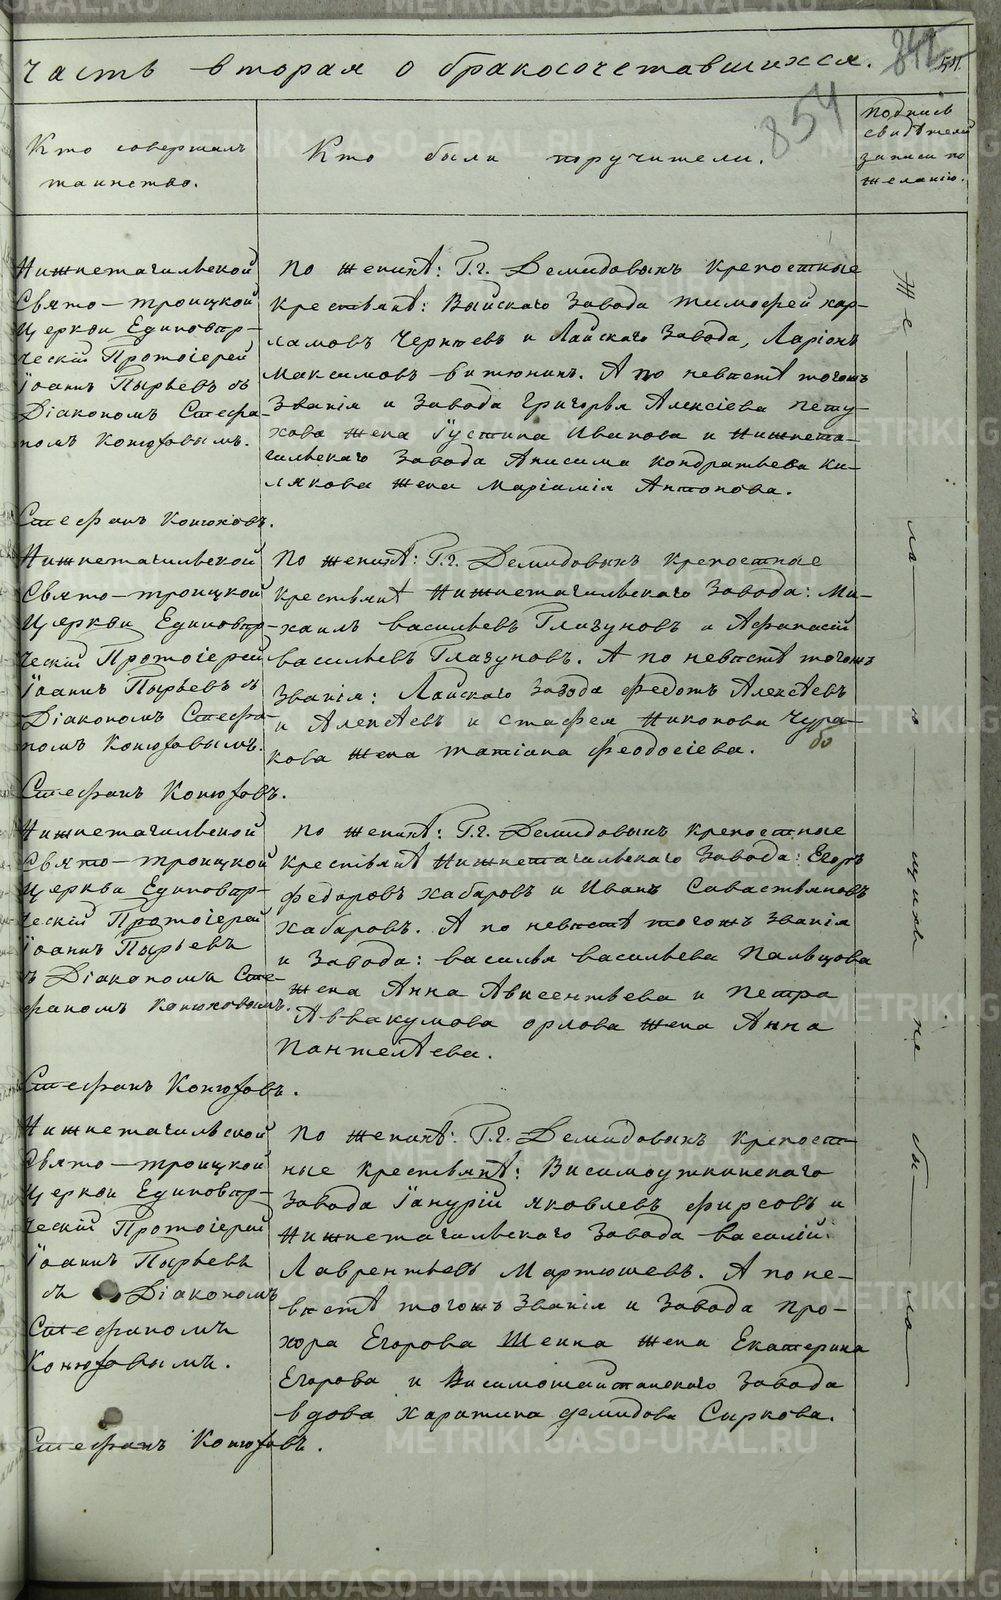 Часть вторая о бракосочетавшихся.
842
854
Кто совершалъ
таинство.
Кто были поручители.
Подпись
свидѣтелей
записи по
желанію.
Нижнетагильской
Свято-троицкой
Церкви Единовѣр-
ческій Протоіерей
Іоаннъ Пырьевъ съ
Діакономъ Стефа-
номъ Конюховымъ.
Стефанъ Конюховъ.
По женихѣ: Г.г. Демидовыхъ крепостные
крестьянѣ: Выйскаго Завода Тимофей Хар-
ламовъ Чернъевъ и Лайскаго Завода, Ларіонъ
Максимовъ Витюнинъ. А по невѣстѣ тогожъ
Званія и Завода Григорья Алексіева Пету-
хова жена Іустина Иванова и Нижнета-
гильскаго Завода Анисима Кондратьева Ки-
лякова жена Маріамія Антонова.
Нижнетагильской
Свято-троицкой
Церкви Единовѣр-
ческій Протоіерей
Іоаннъ Пырьевъ съ
Діакономъ Стефа-
номъ Конюховымъ.
Стефанъ Конюховъ.
По женихѣ: Г.г. Демидовыхъ крепостные
крестьянѣ Нижнетагильскаго Завода: Ми-
хаилъ Васильевъ Глазуновъ и Афанасій
Васильевъ Глазуновъ. А по невѣстѣ тогожъ
Званія: Лайскаго Завода Федотъ Алексѣевъ
и Алексѣевъ и Стафея Никонова Чура-
кова жена Татіана Феодосіева.
Нижнетагильской
Свято-троицкой
Церкви Единовѣр-
ческій Протоіерей
Іоаннъ Пырьевъ
съ Діакономъ Сте-
фаномъ Конюховымъ.
Стефанъ Конюховъ.
По женихѣ: Г.г. Демидовыхъ крепостные
крестьянѣ Нижнетагильскаго Завода: Егоръ
Федоровъ Хабаровъ и Иванъ Савастьяновъ
Хабаровъ. А по невѣстѣ тогожъ Званія
и Завода: Василья Васильева Пальцова
жена Анна Авксентьева и Петра
Аввакумова Орлова жена Анна
Пантелѣева.
Нижнетагильской
Свято-троицкой
Церкви Единовѣр-
ческій Протоіерей
Іоаннъ Пырьевъ
съ Діакономъ
Стефаномъ
Конюховымъ.
Стефанъ Конюховъ.
По женихѣ: Г.г. Демидовыхъ крепост-
ные крестьянѣ: Висимоуткинскаго
Завода Іануарій Яковлевъ Фирсовъ и
Нижнетагильскаго Завода Василій:
Лаврентьевъ Мартюшевъ. А по не-
вѣстѣ тогожъ Званія и Завода Про-
хора Егорова Шеина жена Екатерина
Егорова и Висимошайтанскаго Завода
вдова Харитина Демидова Сыркова.
Же-
ла
ю
щихъ
не
бы-
ло